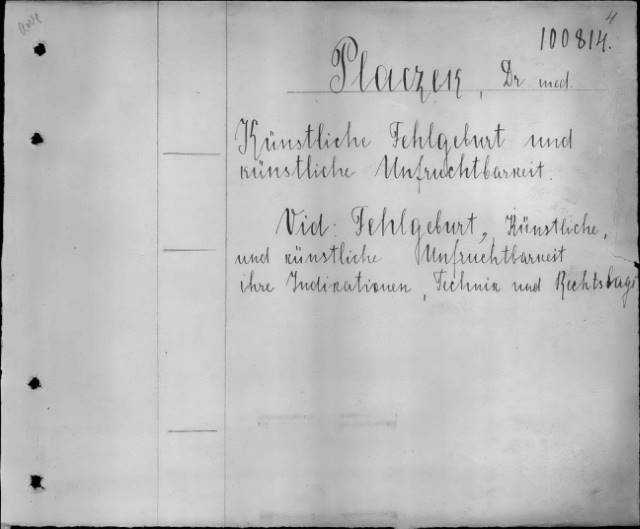 4
100814.
Placzek, Dr med.
Künstliche Fehlgeburt und
künstliche Unfruchtbarkeit.
Vid: Fehlgeburt, Künstliche,
und künstliche Unfruchtbarkeit
ihre Indikationen, Technik und